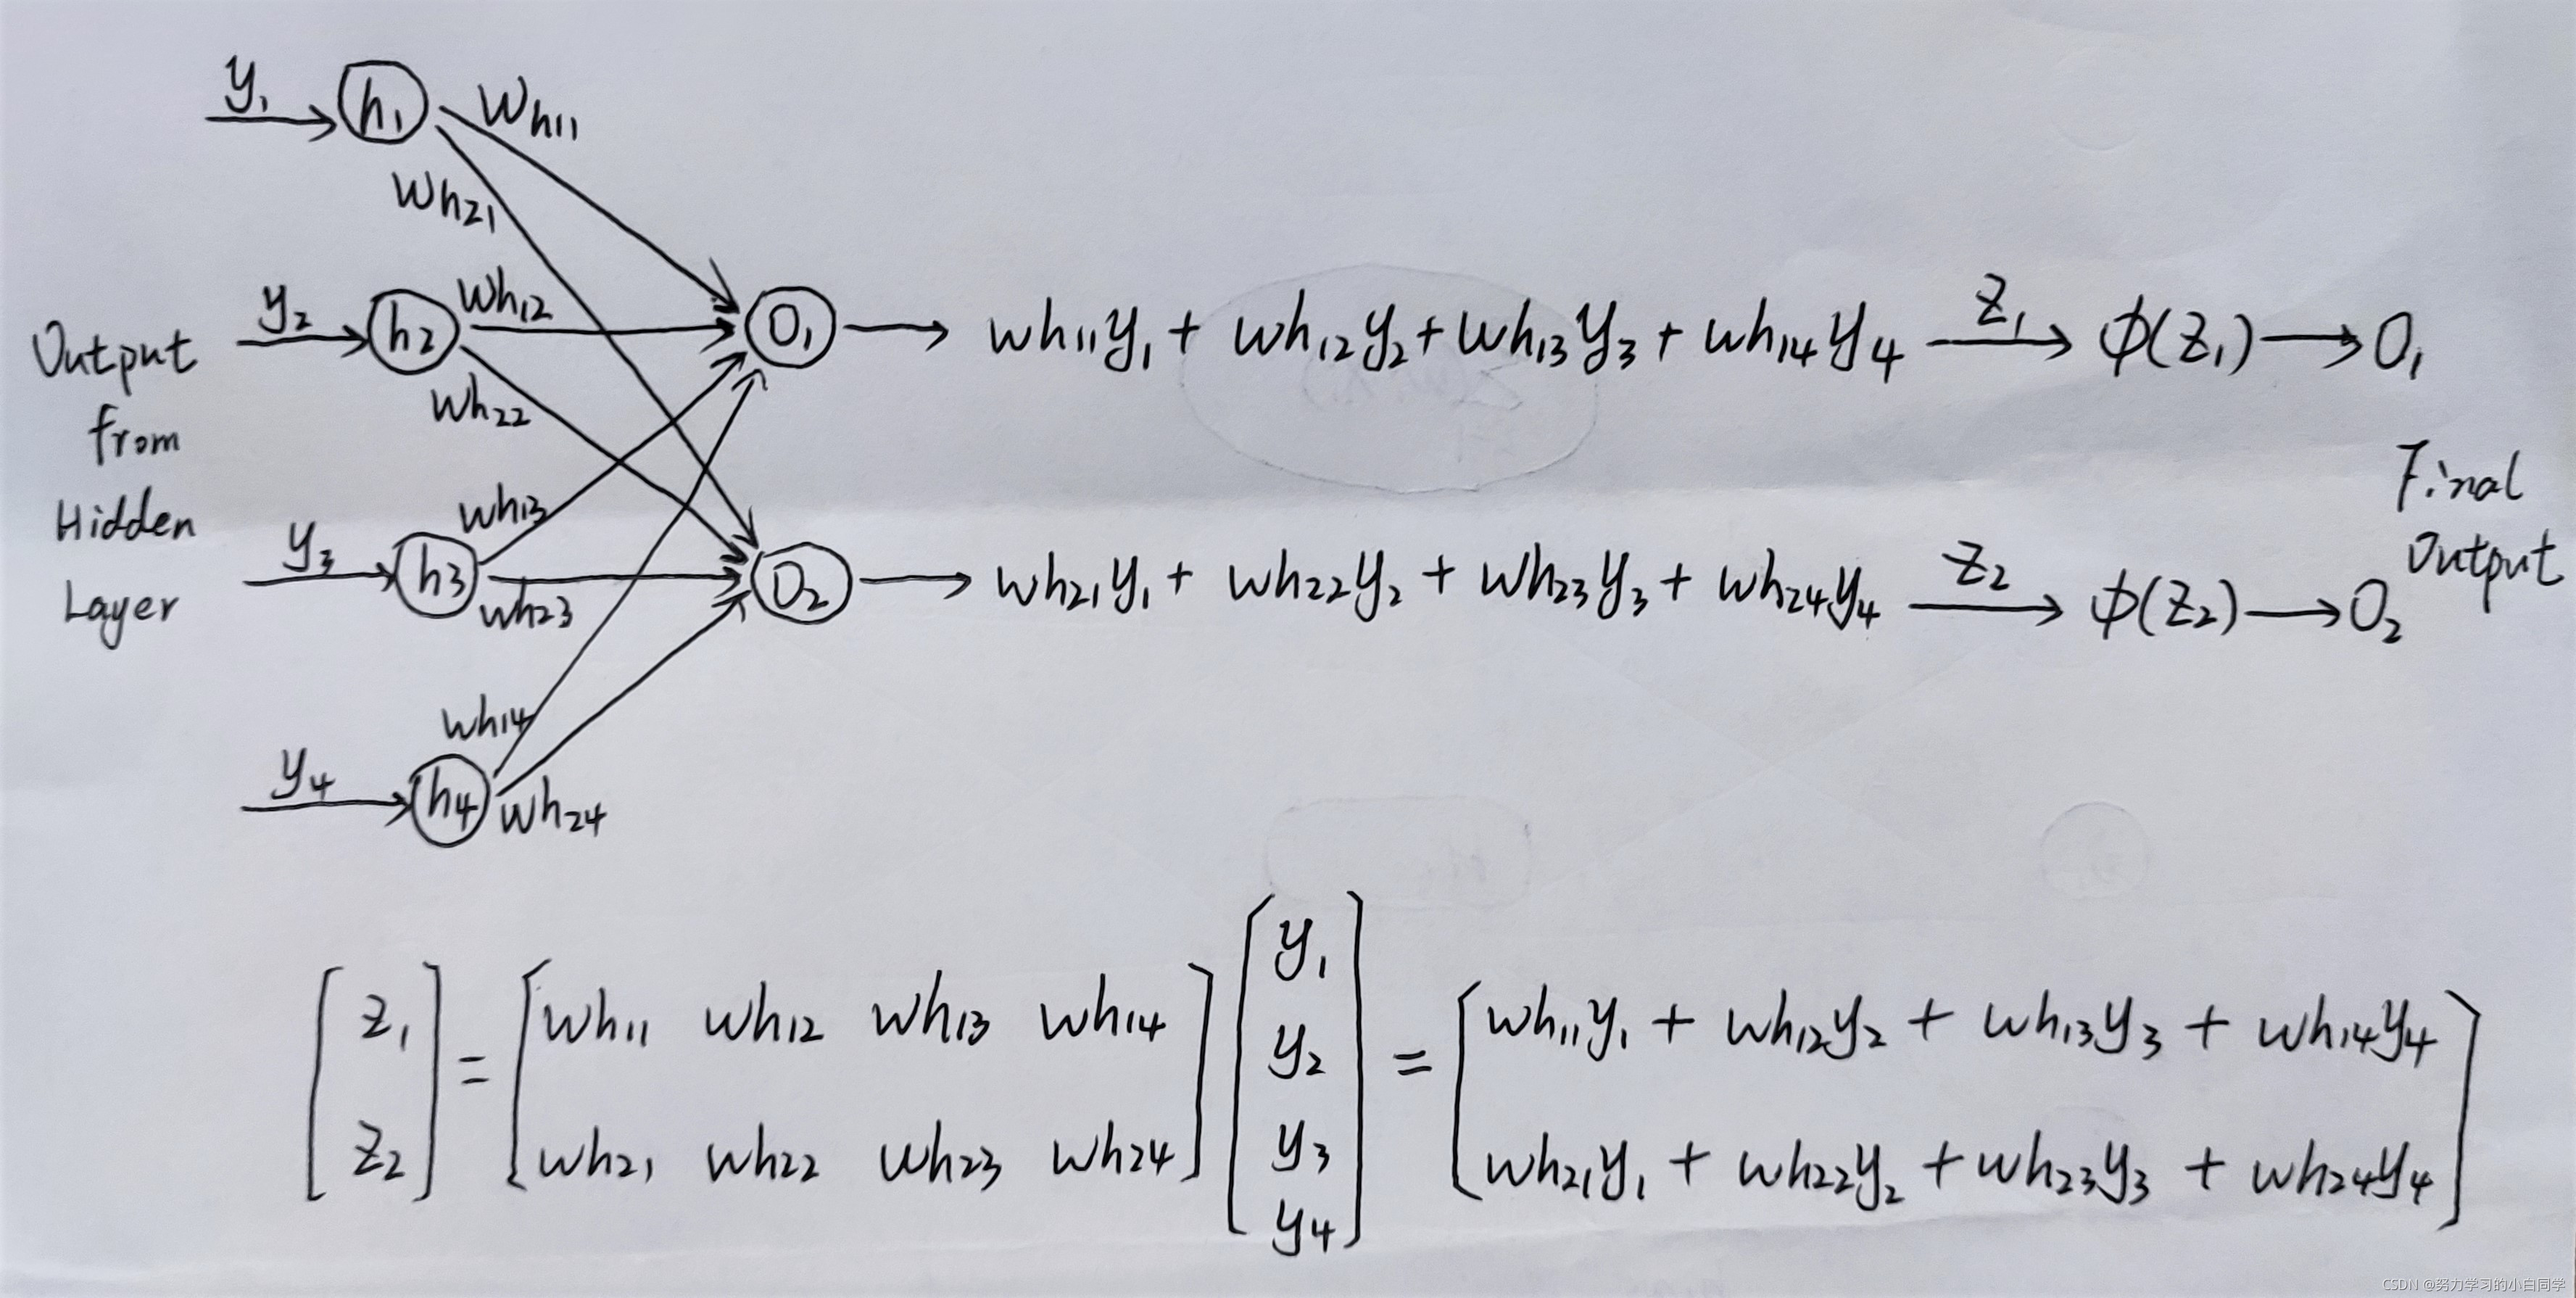 y₁ h₁ Wh11
Wh21
y₂ h2 Wh12
Wh22
Output
from
Hidden
Layer
y₃ h3 Wh13
Wh23
y₄ h4 Wh14
Wh24
O₁ → wh11y₁ + wh12y₂ + wh13y₃ + wh14y₄ z₁ → ϕ(z₁) → O₁
O₂ → wh21y₁ + wh22y₂ + wh23y₃ + wh24y₄ z₂ → ϕ(z₂) → O₂
Final
Output
[z₁ z₂] = [wh11 wh12 wh13 wh14
wh21 wh22 wh23 wh24] [y₁ y₂ y₃ y₄] = [wh11y₁ + wh12y₂ + wh13y₃ + wh14y₄
wh21y₁ + wh22y₂ + wh23y₃ + wh24y₄]
CSDN @努力学习的小白同学